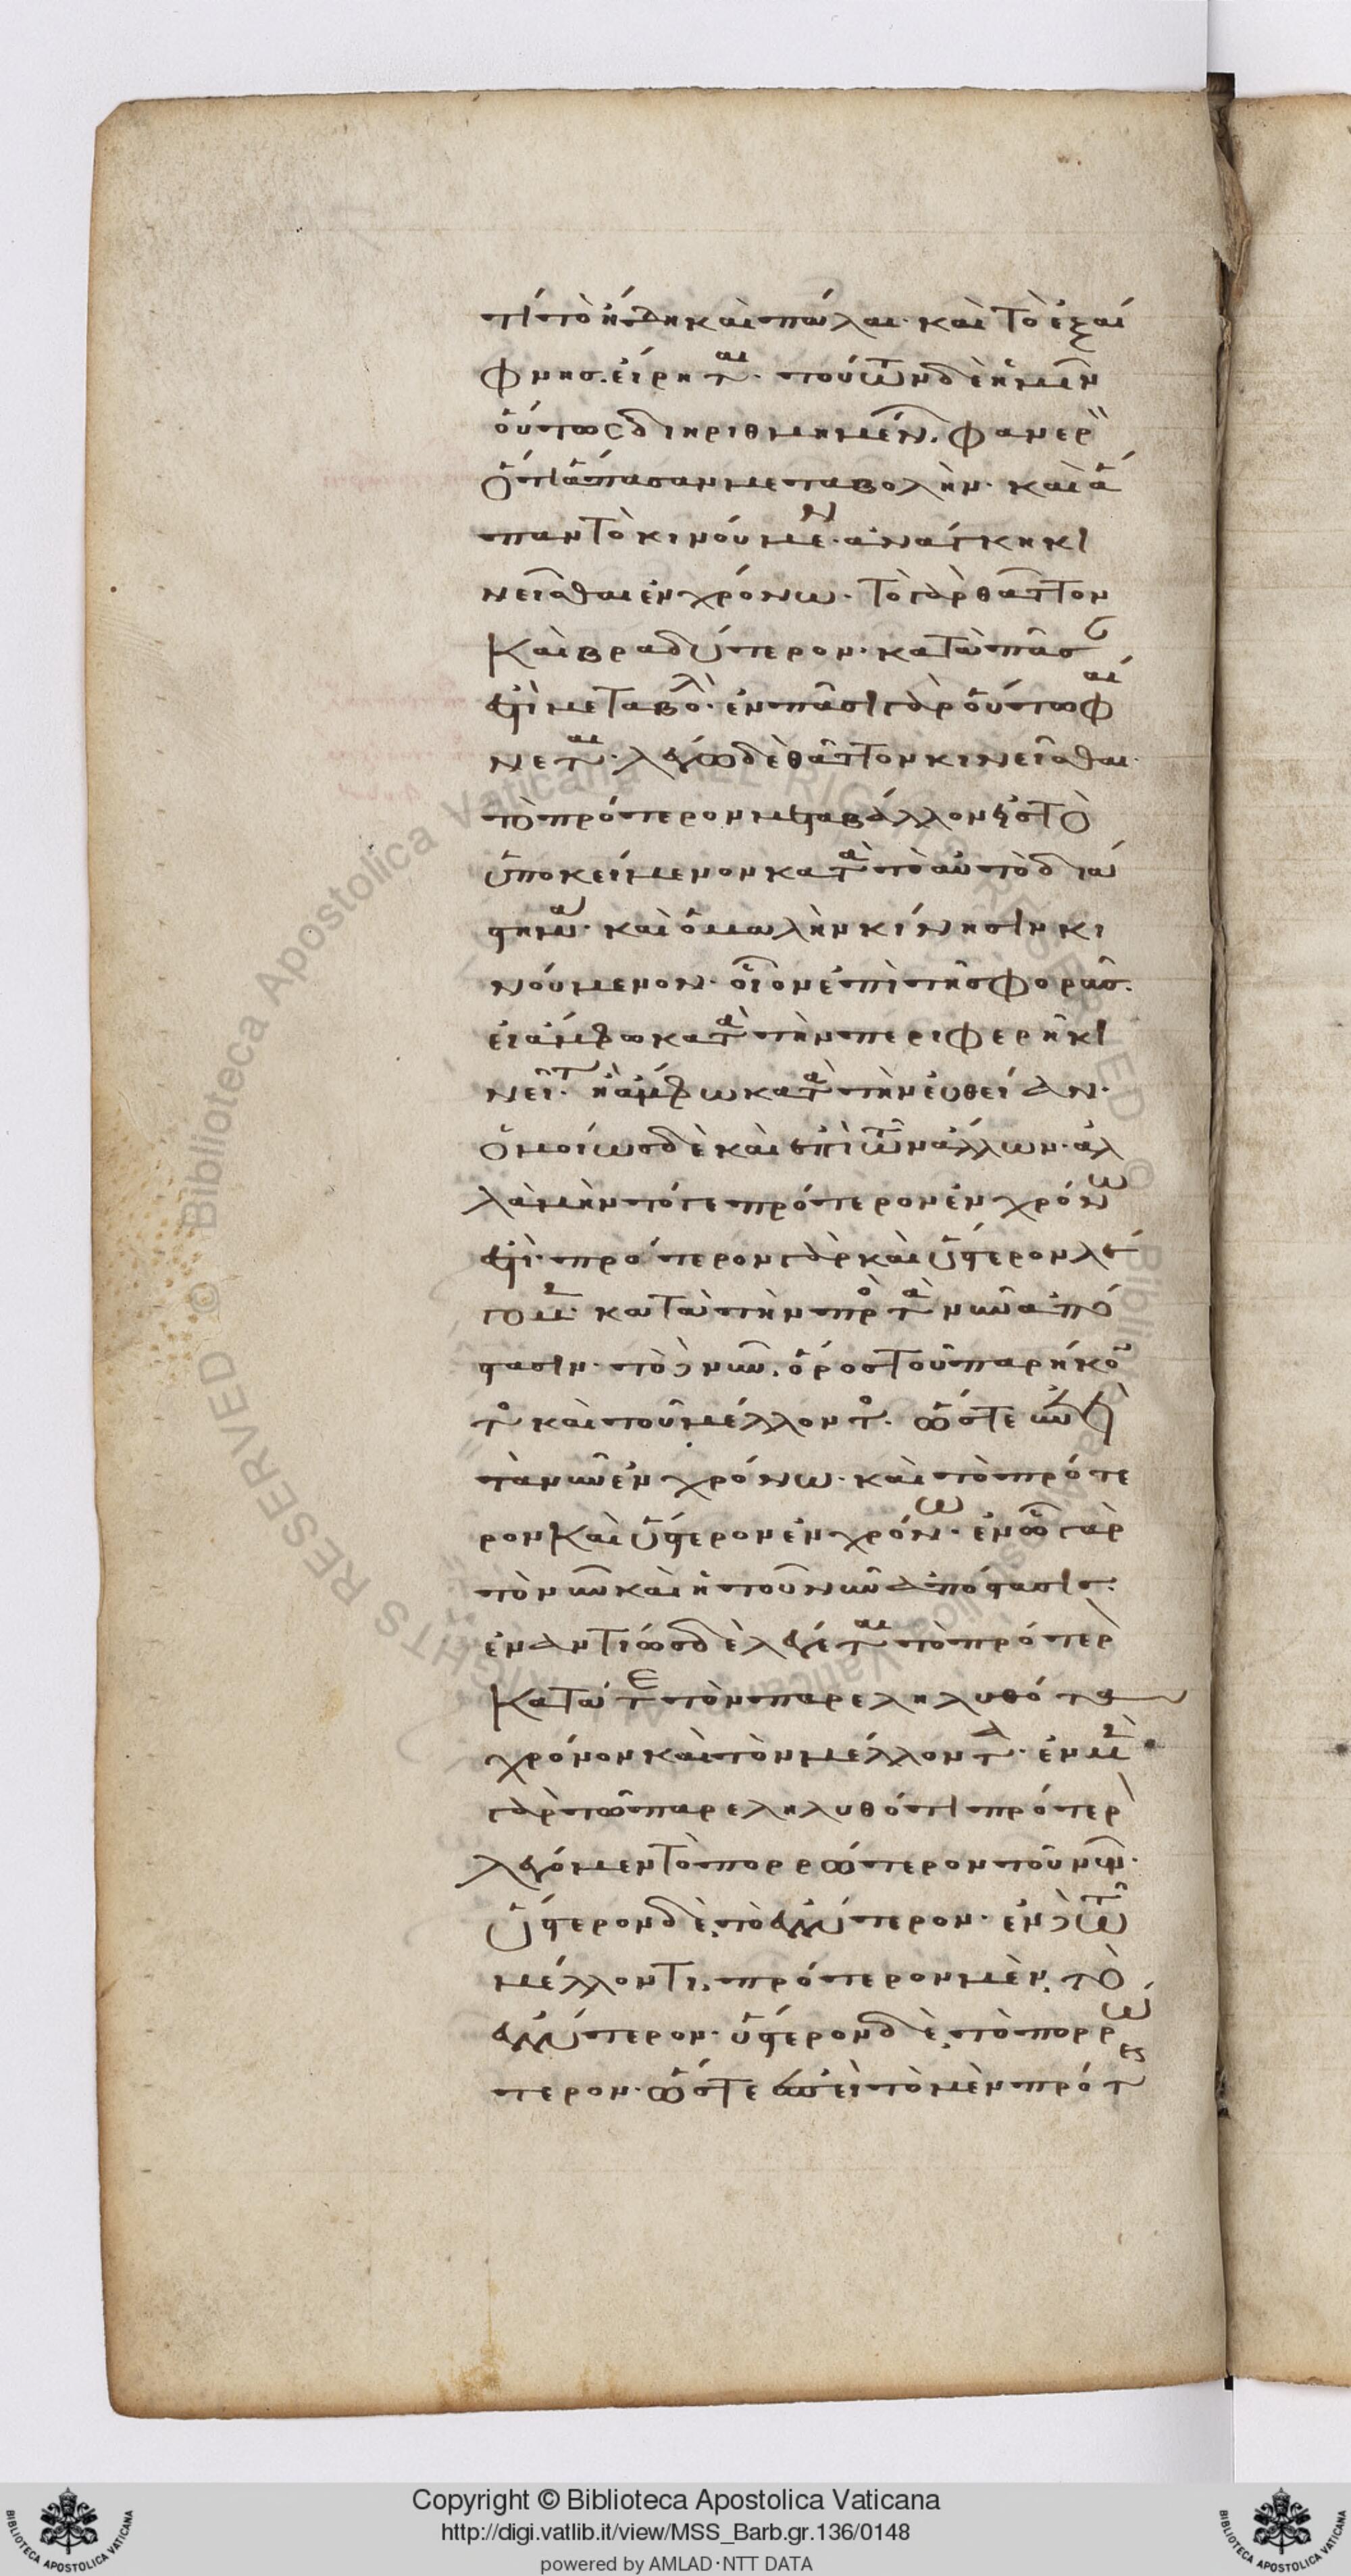 τί τὸ ἤδη καὶ πάλαι· καὶ τὸ ἐξαί
φνης. εἴρηται· τούτων δὲ ἡμῖν
οὕτως διηριθμημένων. φανερὸν
ὅτι ἅπασαν μεταβολὴν· καὶ ἅ
παν τὸ κινούμενον· ἀνάγκη κι
νεῖσθαι ἐν χρόνω· τὸ γὰρ θᾶττον
καὶ βραδύτερον· κατὰ πᾶσάν
ἐστι μεταβολὴν· ἐν πᾶσι γὰρ οὕτω φαί
νεται· λέγω δὲ θᾶττον κινεῖσθαι·
τὸ πρότερον μεταβάλλον εἰς τὸ
ὑποκείμενον κατὰ τὸ αὐτὸ διά
στημα· καὶ ὁμαλὴν κίνησιν κι
νούμενον· οἷον ἐπὶ τῆς φορᾶς.
εἰ ἄμφω κατὰ τὴν περιφερῆ κι
νεῖται· ἢ ἄμφω κατὰ τὴν εὐθείαν·
ὁμοίως δὲ καὶ ἐπὶ τῶν ἄλλων· ἀλ
λὰ μὴν τό γε πρότερον ἐν χρόνω
ἐστι· πρότερον γὰρ καὶ ὕστερον λέ
γομεν· κατὰ τὴν πρὸς τὰ νῦν ἀπό
στασιν· τὸ δὲ νῦν. ὅρος τοῦ παρήκον
τος καὶ τοῦ μέλλοντος. ὥστε ἐπεὶ
τὰ νῦν ἐν χρόνω· καὶ τὸ πρότε
ρον καὶ ὕστερον ἐν χρόνω· ἐν ᾧ γὰρ
τὸ νῦν καὶ ἡ τοῦ νῦν ἀπόστασις·
ἐναντίως δὲ λέγεται τὸ πρότερον
κατά τε τὸν παρεληλυθότα
χρόνον καὶ τὸν μέλλοντα· ἐν μὲν
γὰρ τῶ παρεληλυθότι πρότερον
λέγομεν τὸ πορρώτερον τοῦ νῦν·
ὕστερον δὲ, τὸ ἐγγύτερον· ἐν δὲ τῶ
μέλλοντι, πρότερον μὲν, τὸ
ἐγγύτερον· ὕστερον δὲ, τὸ πορρώ
τερον· ὥστε ἐπεὶ τὸ μὲν πρότε
Copyright © Biblioteca Apostolica Vaticana
http://digi.vatlib.it/view/MSS_Barb.gr.136/0148
powered by AMLAD·NTT DATA